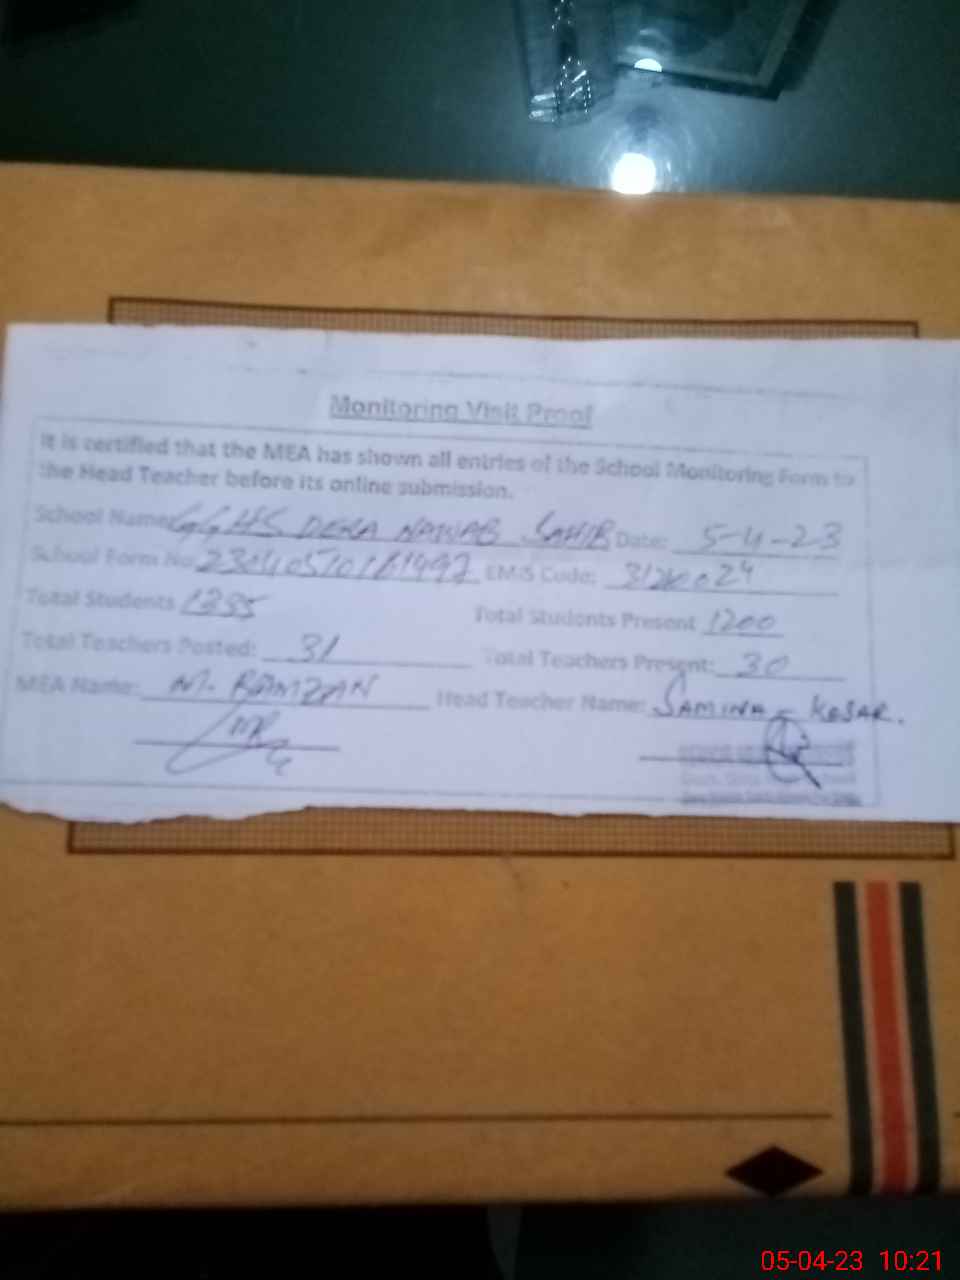 Monitoring Visit Proof
It is certified that the MEA has shown all entries of the School Monitoring Form to
the Head Teacher before its online submission.
School Name GGHS DERA NAWAB SAHIB Date: 5-4-23
School Form No: EMIS Code:
Total Students Total Students Present 1200
Total Teachers Posted: 31 Total Teachers Present: 30
MEA Name: M. RAMZAN Head Teacher Name: SAMINA KOSAR.
05-04-23 10:21